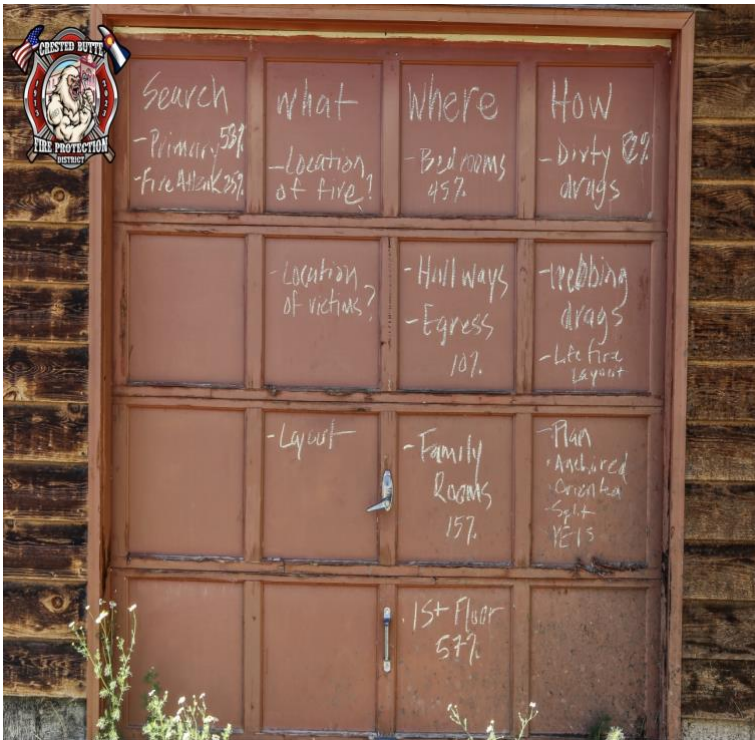 CRESTED BUTTE
1973
2023
FIRE PROTECTION
DISTRICT
Search
-Primary 53%
-Fire Attack 25%
what
-Location
of fire?
-Location
of victims?
-Layout
Where
-Bedrooms
45%
-Hallways
-Egress
10%
-Family
Rooms
15%
.1st Floor
57%
How
-Dirty
drags
-webbing
drags
-Lifefire
Layout
-Plan
•Anchored
•Oriented
•Split
VEIS